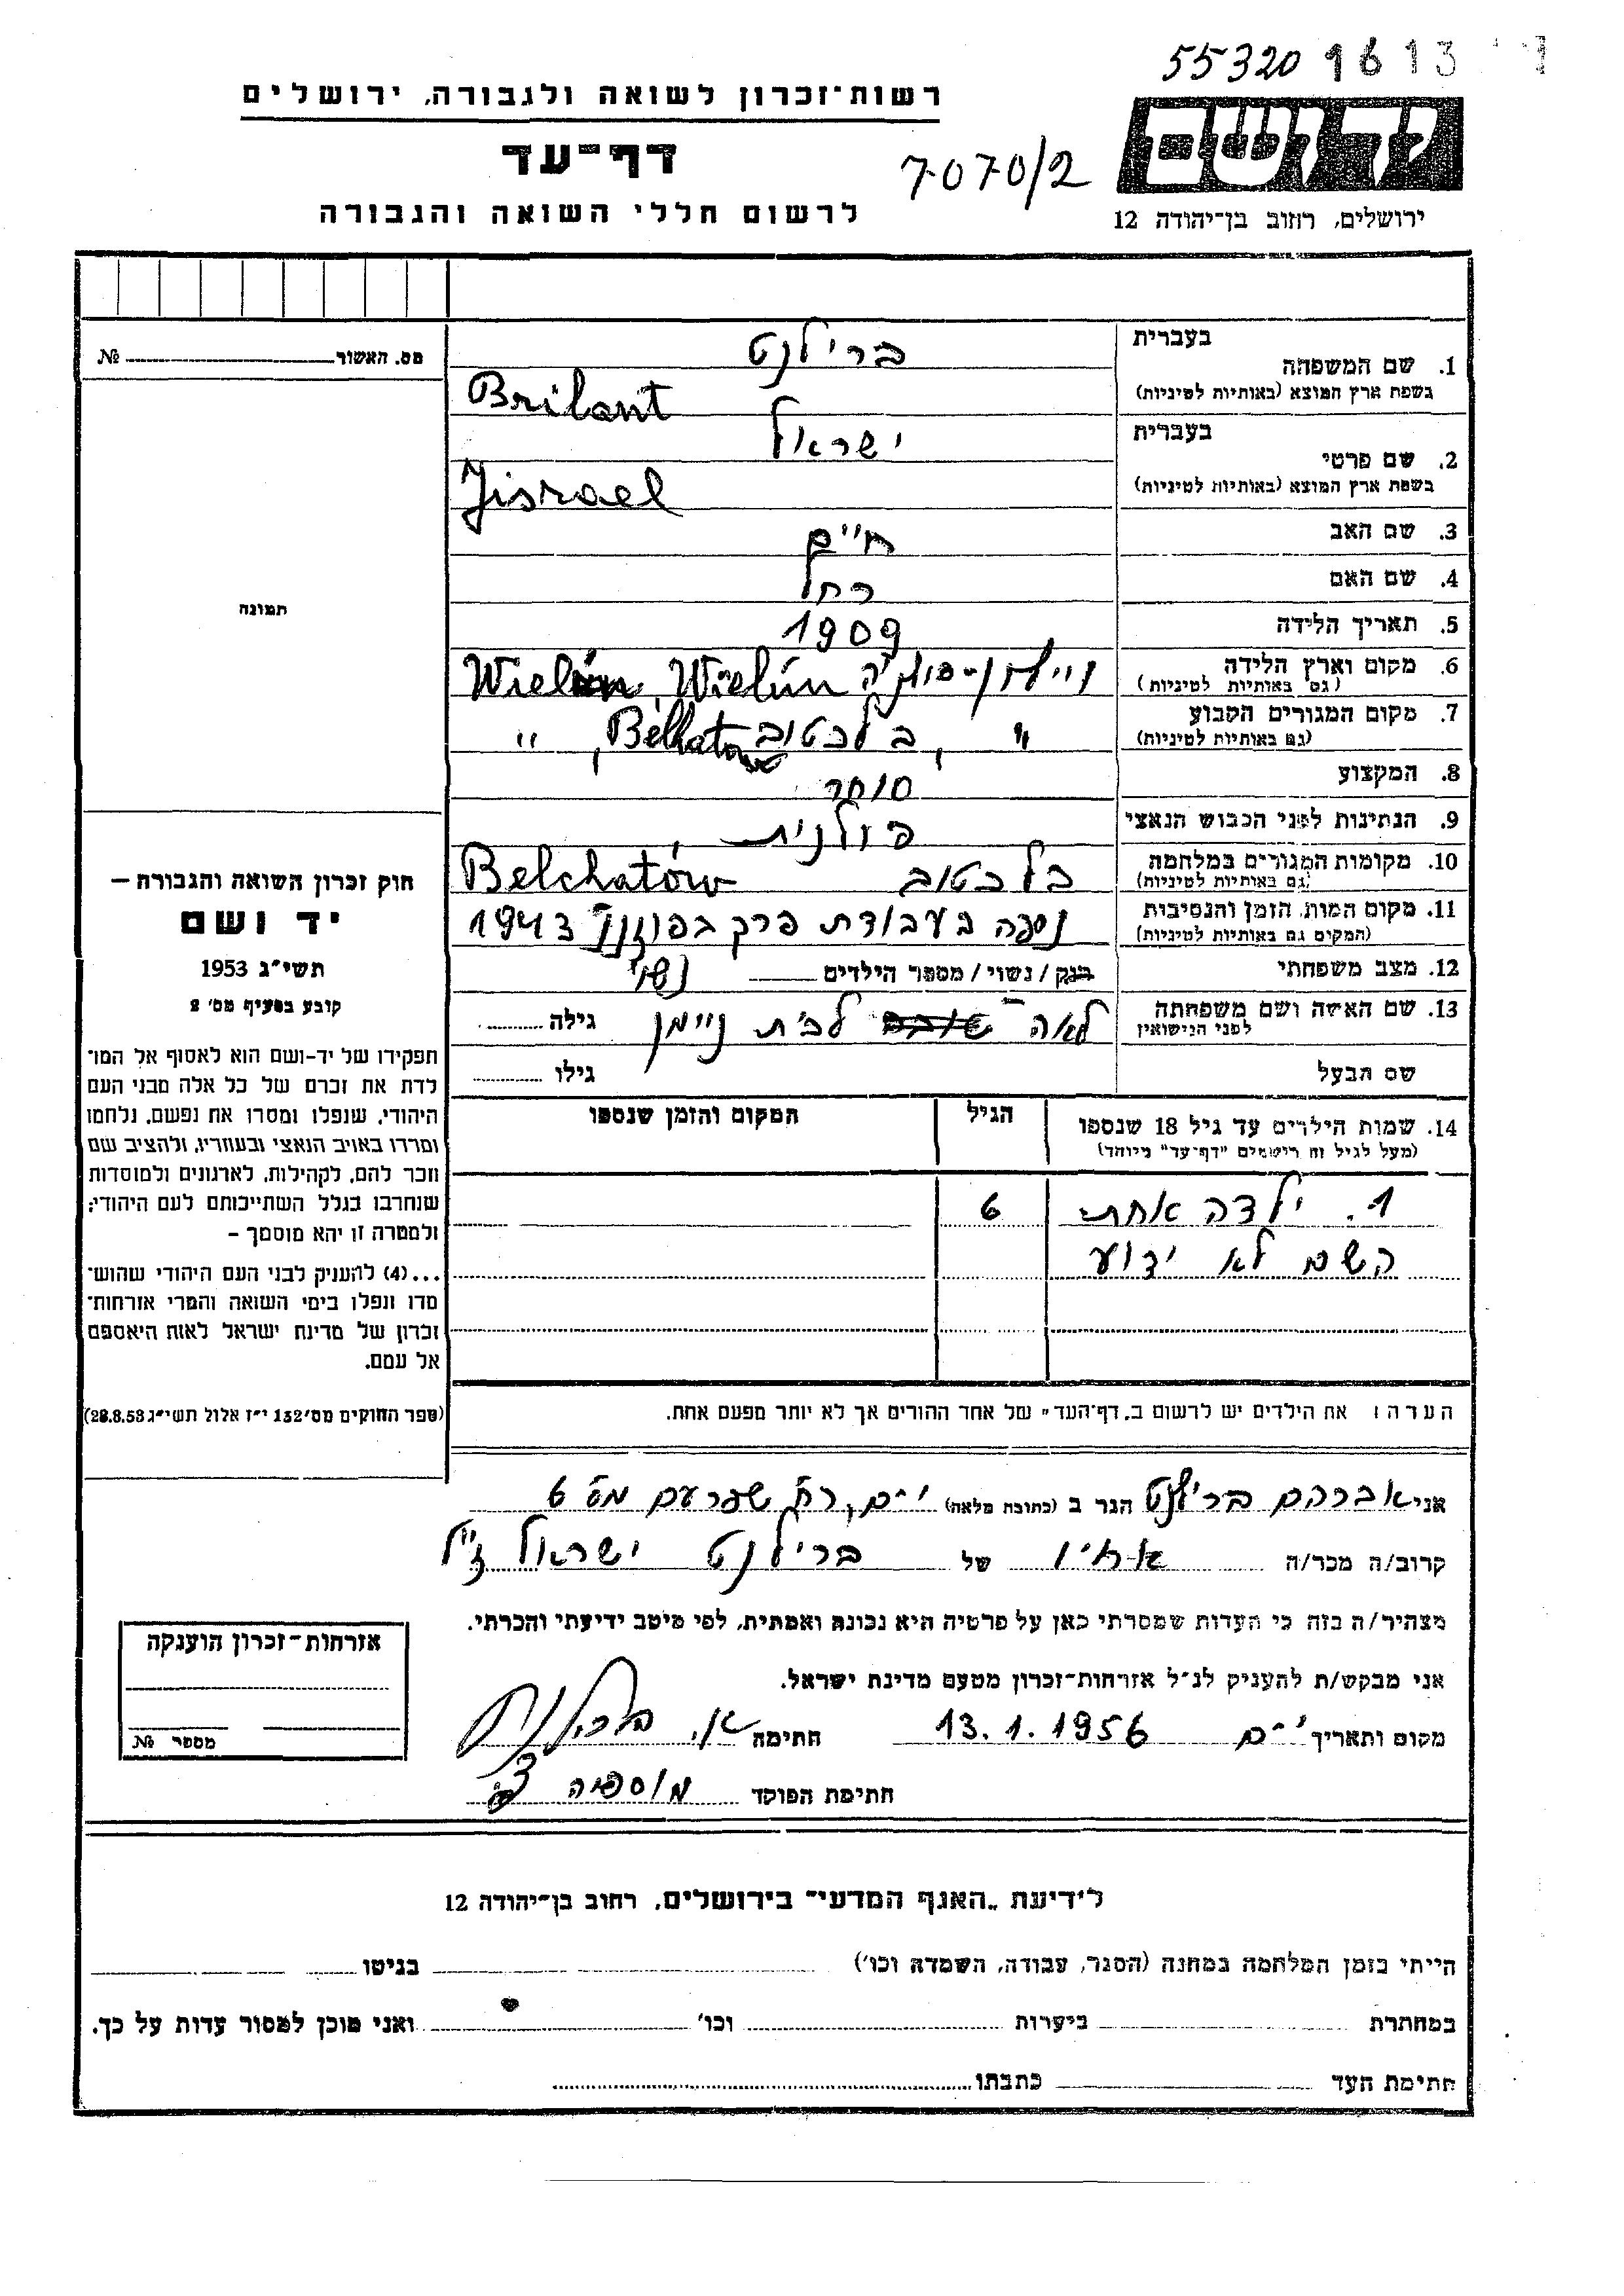 55320 1613
רשות־זכרון לשואה ולגבורה, ירושלים
דף־עד
7070/2
לרשום חללי השואה והגבורה
ירושלים, רחוב בן־יהודה 12
מס. האשור № 
בעברית
1. שם המשפחה
ברילנט
בשפת ארץ המוצא (באותיות לטיניות)
Brilant
בעברית
2. שם פרטי
ישראל
בשפת ארץ המוצא (באותיות לטיניות)
Jisrael
3. שם האב
חיים
4. שם האם
רחל
תמונה
5. תאריך הלידה
1909
6. מקום וארץ הלידה
(גם באותיות לטיניות)
Wielún
7. מקום המגורים הקבוע
(גם באותיות לטיניות)
" , בלכטוב
8. המקצוע
סוחר
9. הנתינות לפני הכבוש הנאצי
פולנית
10. מקומות המגורים במלחמה
(גם באותיות לטיניות)
בלכטוב Belchatów
11. מקום המות, הזמן והנסיבות
(המקום גם באותיות לטיניות)
נספה בעבודת פרך בפוזנן 1943
12. מצב משפחתי
רווק / נשוי / מספר הילדים
נשוי
13. שם האשה ושם משפחתה
לפני הנישואין
לאה לבית ניימן
גילה
שם הבעל
גילו
14. שמות הילדים עד גיל 18 שנספו
(מעל לגיל זה רישמים "דף־עד" מיוחד)
הגיל
המקום והזמן שנספו
1. ילדה אחת 6
השם לא ידוע
הערה: את הילדים יש לרשום ב„דף־העד" של אחד ההורים אך לא יותר מפעם אחת.
חוק זכרון השואה והגבורה —
יד ושם
תשי"ג 1953
קובע בסעיף מס' 2
תפקידו של יד-ושם הוא לאסוף אל המו־
לדת את זכרם של כל אלה מבני העם
היהודי, שנפלו ומסרו את נפשם, נלחמו
ומרדו באויב הנאצי ובעוזריו, ולהציב שם
וזכר להם, לקהילות, לארגונים ולמוסדות
שנחרבו בגלל השתייכותם לעם היהודי;
ולמטרה זו יהא מוסמך –
...(4) להעניק לבני העם היהודי שהוש־
מדו ונפלו בימי השואה והמרי אזרחות־
זכרון של מדינת ישראל לאות היאספם
אל עמם.
(ספר החוקים מס' 132 י"ז אלול תשי"ג 28.8.53)
אני אברהם ברילנט הגר ב (כתובת מלאה) י-ם, רח' שפרעם מס' 6
קרוב/ה מכר/ה אחיו של ברילנט ישראל ז"ל
מצהיר/ה בזה כי העדות שמסרתי כאן על פרטיה היא נכונה ואמתית, לפי מיטב ידיעתי והכרתי.
אני מבקש/ת להעניק לנ"ל אזרחות־זכרון מטעם מדינת ישראל.
מקום ותאריך י-ם 13.1.1956 חתימה א. ברילנט
חתימת הפוקד
אזרחות־זכרון הוענקה
מספר №
לידיעת „האגף המדעי" בירושלים, רחוב בן־יהודה 12
הייתי בזמן המלחמה במחנה (הסגר, עבודה, השמדה וכו') בגיטו
במחתרת ביערות וכו' ואני מוכן למסור עדות על כך.
חתימת העד כתבתו